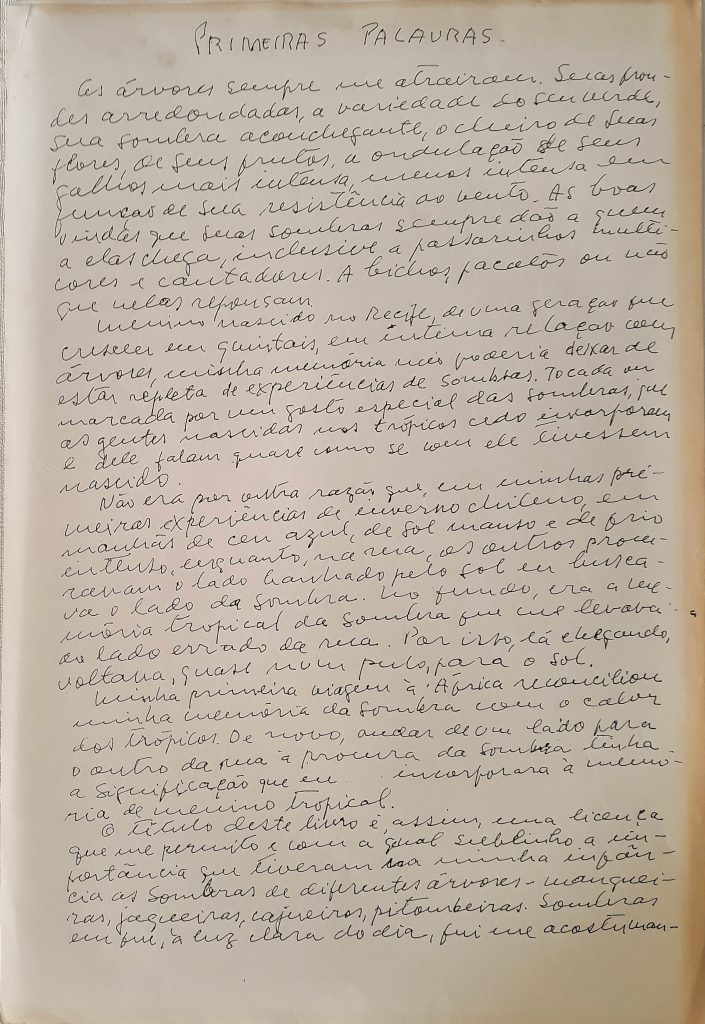 PRIMEIRAS PALAVRAS.
As árvores sempre me atraíram. Suas fron-
des arredondadas, a variedade do seu verde,
sua sombra aconchegante, o cheiro de suas
flores, de seus frutos, a ondulação de seus
galhos mais intensa, menos intensa em
função de sua resistência ao vento. As boas
vindas que suas sombras sempre dão a quem
a elas chega, inclusive a passarinhos multi-
cores e cantadores. A bichos, pacatos ou não
que nelas repousam.
Menino nascido no Recife, de uma geração que
cresceu em quintais, em íntima relação com
árvores, minha memória não poderia deixar de
estar repleta de experiências de sombras. Tocada ou
marcada por um gosto especial das sombras, que
as gentes nascidas nos trópicos cedo incorporam
e dele falam quase como se com ele tivessem
nascido.
Não era por outra razão que, em minhas pri-
meiras experiências de inverno chileno, em
manhãs de céu azul, de sol manso e de frio
intenso, enquanto, na rua, os outros procu-
ravam o lado banhado pelo sol eu busca-
va o lado da sombra. No fundo, era a me-
mória tropical da sombra que me levava
ao lado errado da rua. Por isso, lá chegando,
voltava, quase num pulo, para o sol.
Minha primeira viagem à África reconciliou
minha memória da sombra com o calor
dos trópicos. De novo, andar de um lado para
o outro da rua à procura da sombra tinha
a significação que eu incorporara à memó-
ria de menino tropical.
O título deste livro é, assim, uma licença
que me permito e com a qual sublinho a im-
portância que tiveram na minha infân-
cia as sombras de diferentes árvores - manguei-
ras, jaqueiras, cajueiros, pitombeiras. Sombras
em que, à luz clara do dia, fui me acostuman-